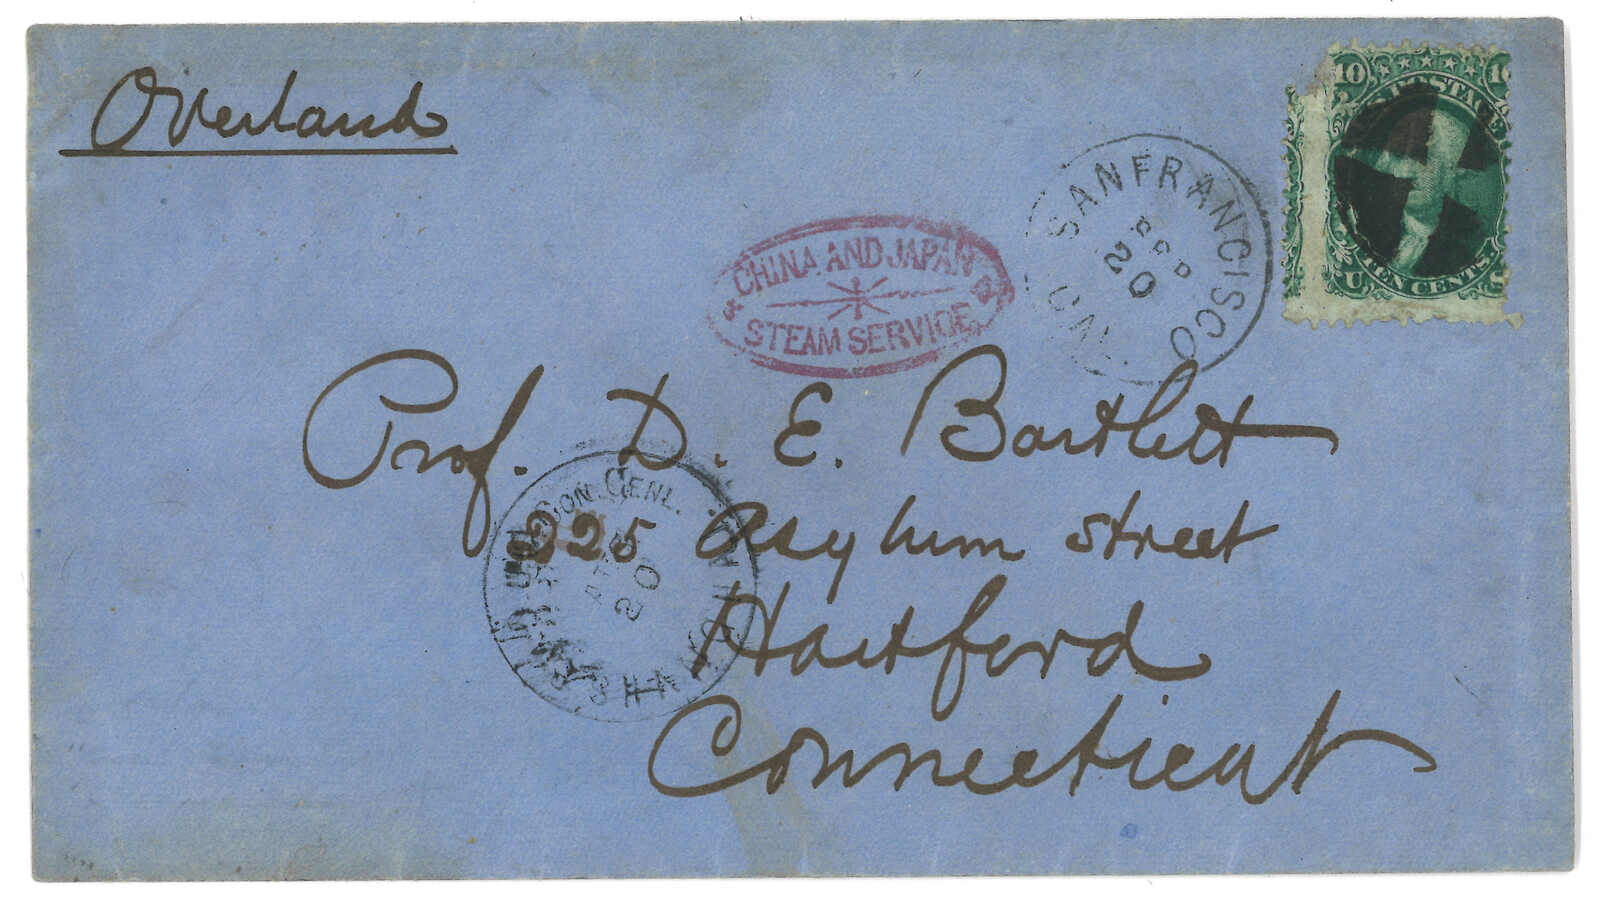 Overland
10 10
U.S. POSTAGE
U TEN CENTS. S
SAN FRANCISCO
SEP
20
CAL.
CHINA AND JAPAN
STEAM SERVICE
Prof. D. E. Bartlett
225 Asylum street
Hartford
Connecticut
CON. GENL.
20